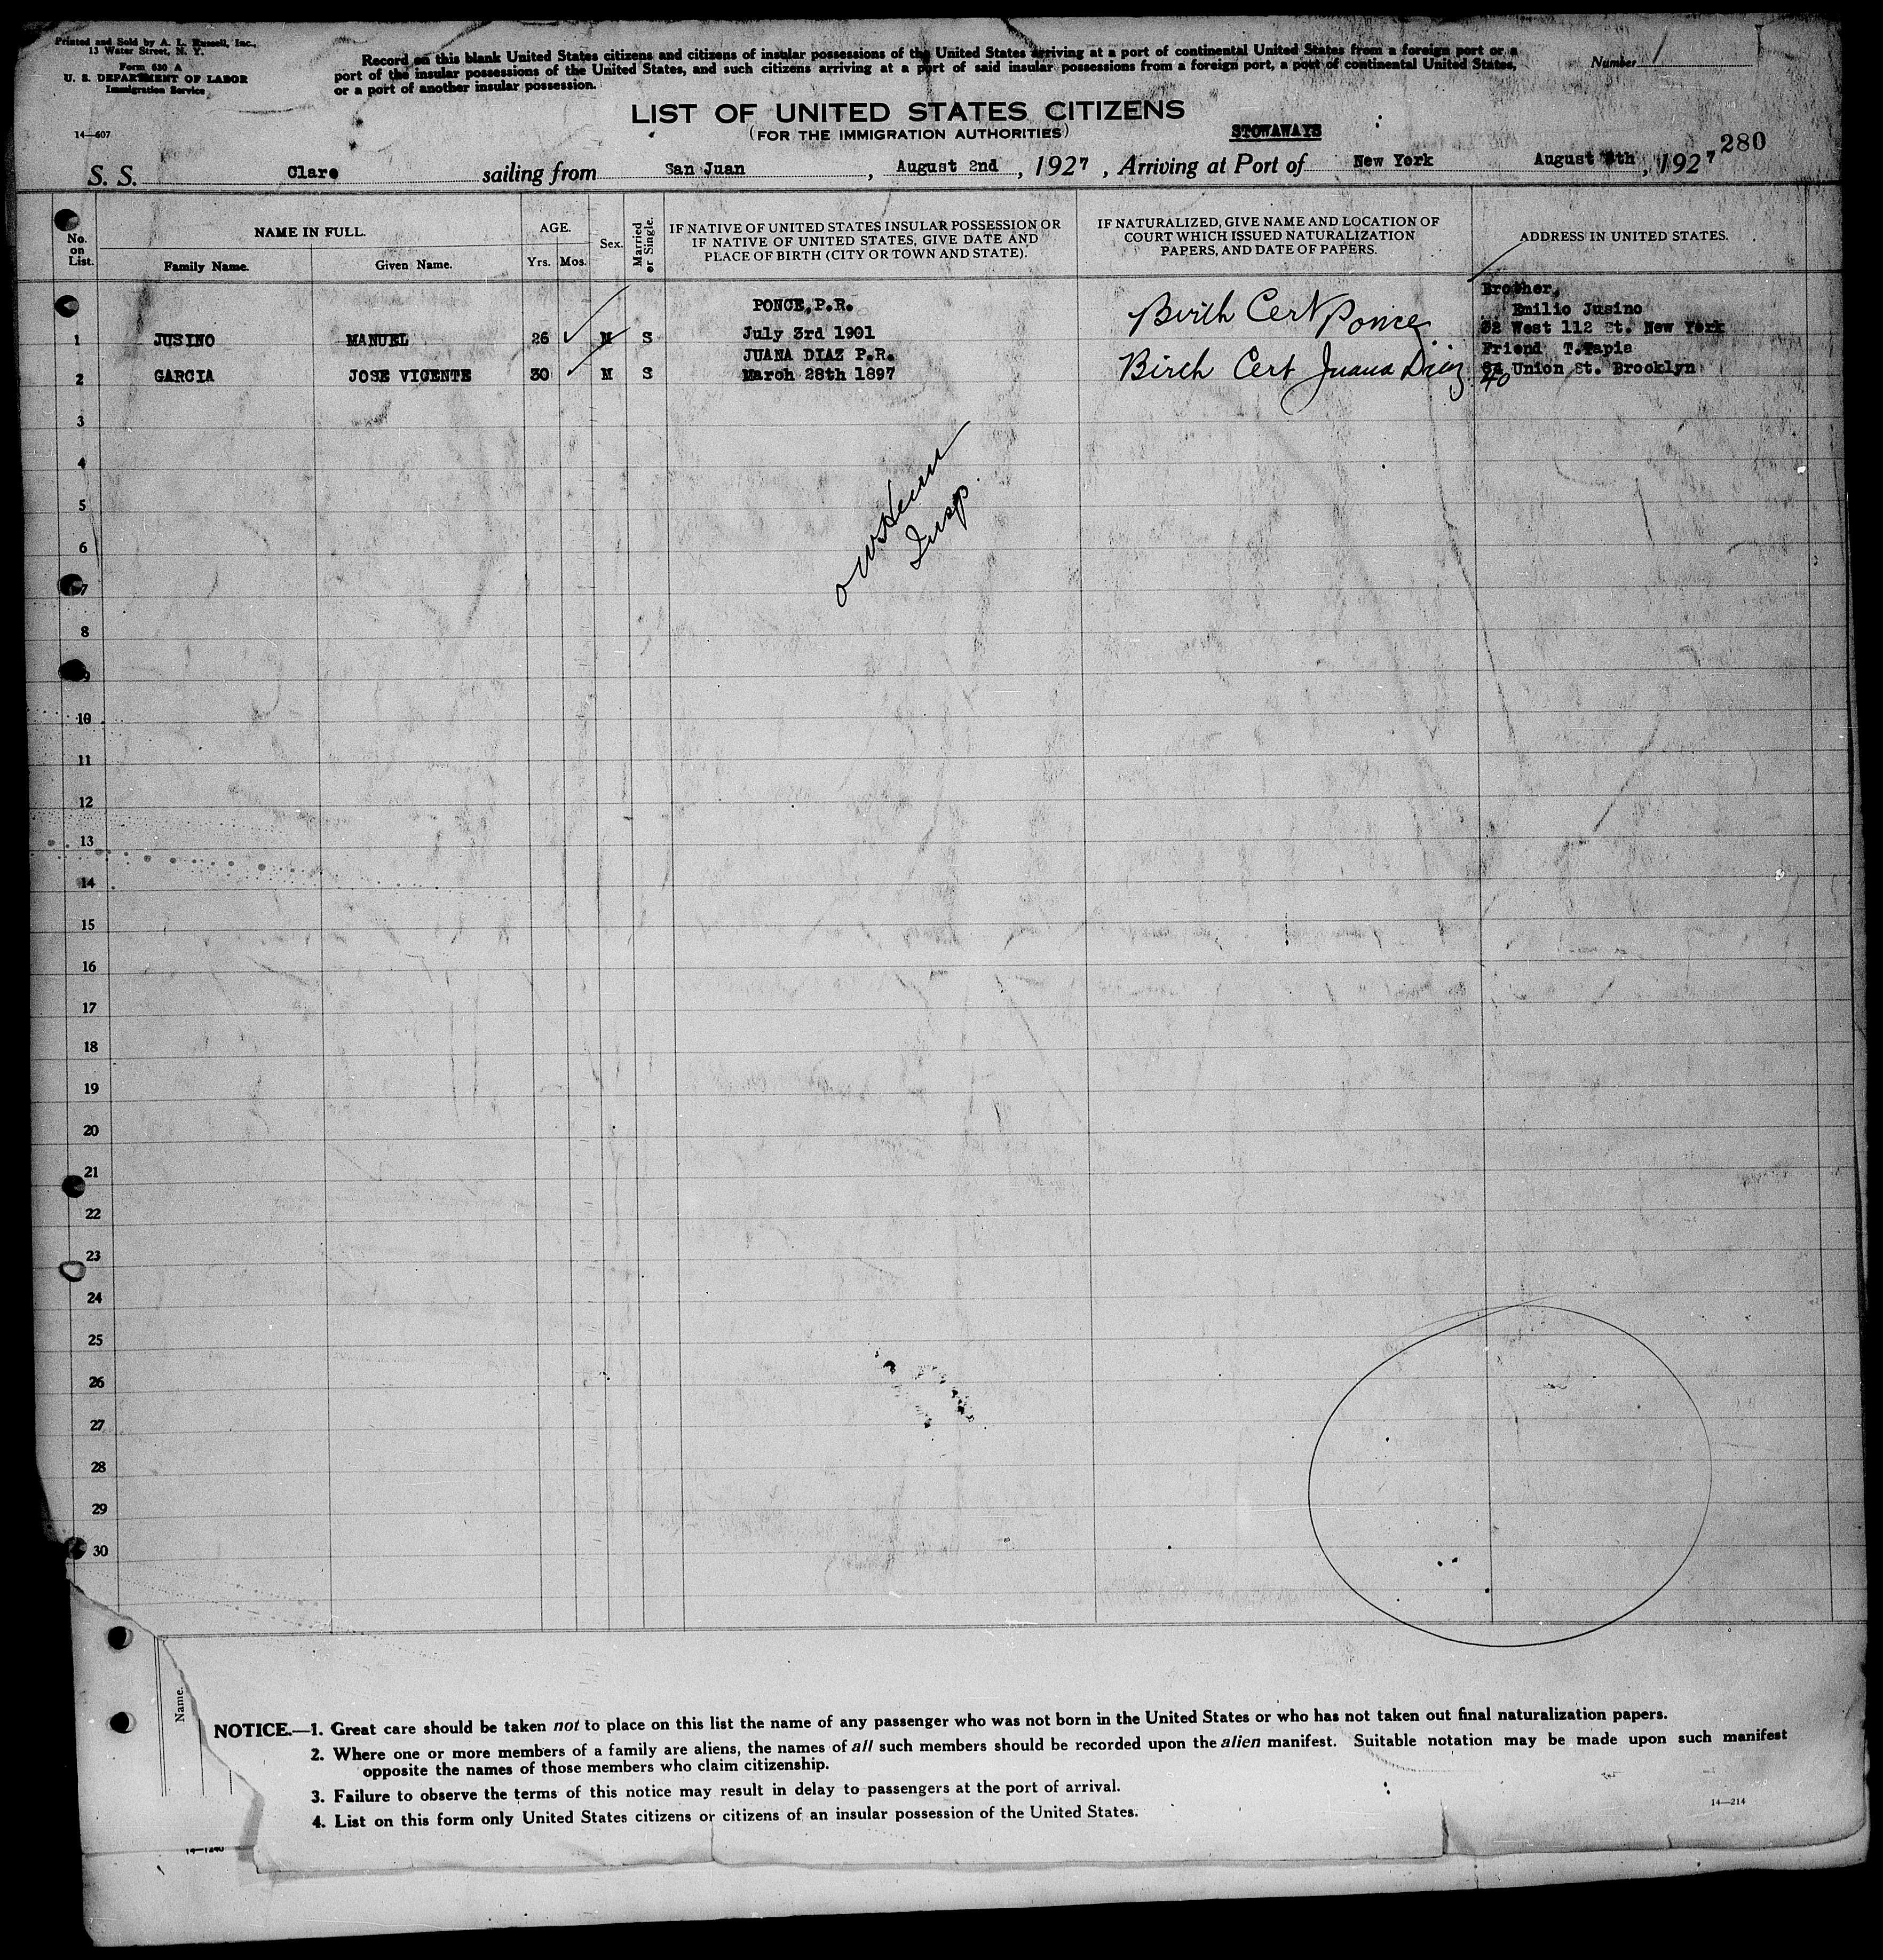 Printed and Sold by A. L. Russell, Inc.,
13 Water Street, N. Y.
Form 630 A
U. S. DEPARTMENT OF LABOR
Immigration Service
14—607
Record on this blank United States citizens and citizens of insular possessions of the United States arriving at a port of continental United States from a foreign port or a
port of the insular possessions of the United States, and such citizens arriving at a port of said insular possessions from a foreign port, a port of continental United States,
or a port of another insular possession.
Number 1
LIST OF UNITED STATES CITIZENS
(FOR THE IMMIGRATION AUTHORITIES)
STOWAWAYS
280
S. S. Clare sailing from San Juan, August 2nd, 1927, Arriving at Port of New York August th, 1927
No. on List.
NAME IN FULL.
Family Name. Given Name.
AGE.
Yrs. Mos.
Sex.
Married or Single.
IF NATIVE OF UNITED STATES INSULAR POSSESSION OR
IF NATIVE OF UNITED STATES, GIVE DATE AND
PLACE OF BIRTH (CITY OR TOWN AND STATE).
IF NATURALIZED, GIVE NAME AND LOCATION OF
COURT WHICH ISSUED NATURALIZATION
PAPERS, AND DATE OF PAPERS.
ADDRESS IN UNITED STATES.
PONCE, P.R.
Brother,
Emilio Jusino
1 JUSINO MANUEL 26 M S July 3rd 1901 Birth Cert Ponce 32 West 112 St. New York
JUANA DIAZ P.R.
Friend T.Tapia
2 GARCIA JOSE VICENTE 30 M S March 28th 1897 Birth Cert Juana Diaz Union St. Brooklyn
40
3
4
5
Insp
6
7
8
9
10
11
12
13
14
15
16
17
18
19
20
21
22
23
24
25
26
27
28
29
30
Name.
NOTICE.—1. Great care should be taken not to place on this list the name of any passenger who was not born in the United States or who has not taken out final naturalization papers.
2. Where one or more members of a family are aliens, the names of all such members should be recorded upon the alien manifest. Suitable notation may be made upon such manifest
opposite the names of those members who claim citizenship.
3. Failure to observe the terms of this notice may result in delay to passengers at the port of arrival.
4. List on this form only United States citizens or citizens of an insular possession of the United States.
14—214
14—1240